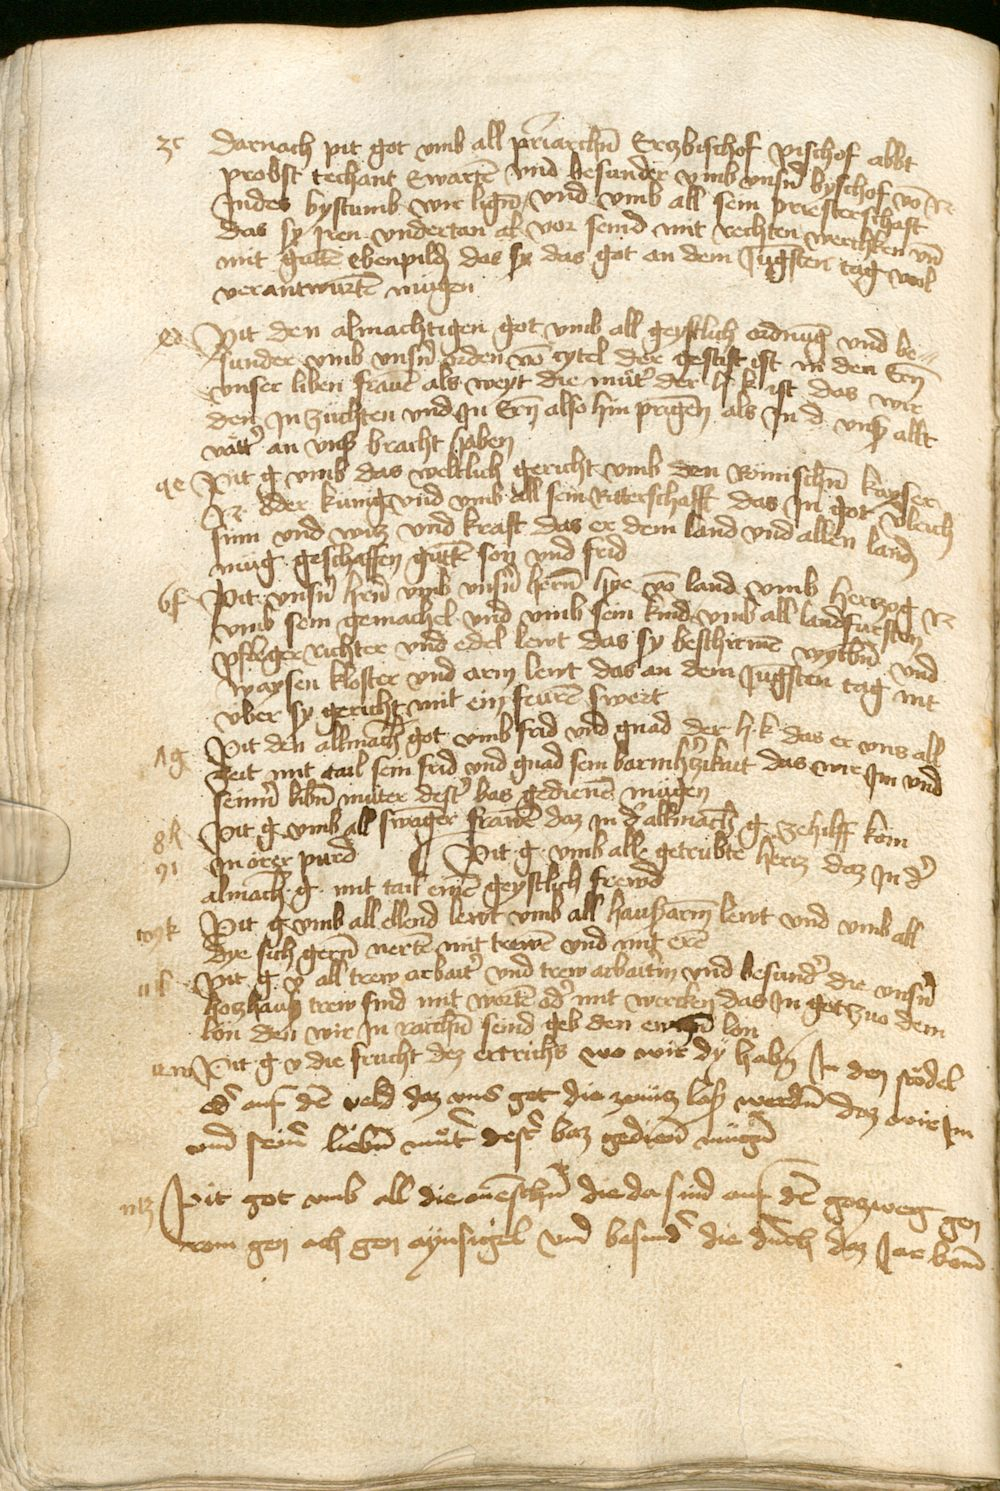 3c Darnach pit got vmb all priarchn̄ Erczbischof pischof abbt
probst techant Ewartē vnd besunder vmb vnsn̄ byschof vō R
Jn des bystumb wir lign̄ vnd vmb all sein priesterschaft
das sy jren vndertan al vor seind mit rechten werchken vn̄
mit gutē ebenpild das sy das got an dem Jūgsten tag wol
verantwurtē mügen
Pit den almachtigen got vmb all geystlich ordnūg vnd be=
sunder vmb vnsn̄ orden vō cytel der gestift ist in den Ern̄
vnser liben frauē als weyt die mut̄ der h k ist das wir
den Jn züchten vnd Jn Ern̄ also hin pragen als Jn d vnß allt
vätt̄ an vnß bracht haben
Pit g vmb das weltlich gericht vmb den Römischn̄ kayser
R oder künig vnd vmb all sein Ritterschafft das Jn got verleich
sinn vnd wicz vnd kraft das er dem land vnd allen land
müg geschaffen gutē son vnd frid
6f Pit vnsn̄ hrn̄ vmb vnsn̄ hern̄ hye vō land vmb herczog R
vmb sein gemachel vnd vmb sein kind vmb all landfursten
pfleger richter vnd edel lewt das sy beschirmē wytbn̄ vnd
waysen kloster vnd arm lewt das an dem Jūgsten tag nit
vber sy gericht mit ein feurē swert
Λg Pit den allmach got vmb frid vnd gnad der h. k das er vns all
zeit mit tail sein frid vnd gnad sein barmhcikait das wir Jm vnd
seinn̄ libn̄ muter dest̄ bas gedienē mügen
8h Pit g vmb all swanger frawē daz in d̄ allmach g zehilff kom
9i Jn örer purd ¶ Pit g vmb alle getrübte hercz daz Jn d̄
almach. g. mit tail einē geystlich frewd
Pit g vmb all ellend lewt vmb all haußarm lewt vnd vmb all
dye sich gern̄ nertē mit trewē vnd mit erē
Pit g v all trew arbait̄ vnd trew arbaitin̄ vnd besund̄ die vnsn̄
goczhauß trew sind mit wortē od̄ mit wercken das Jn got zuo dem
lon den wir Jn raichn̄ seind geb den ewign̄ lon
12m Pit g v die frucht dez ertrichs wo wir dy habn̄ Jn den städel
od̄ auf dē veld daz vns got die zenücz laß werdn̄ daz wir Jm
vnd sein̄ liebn̄ mut̄ dest̄ baz gedienn̄ mügn̄
Pit got vmb all die menschn̄ die da sind auf dē goczweg gen
rom gen ach gen aynsigel vnd besund̄ die durch daz Jar kom̄